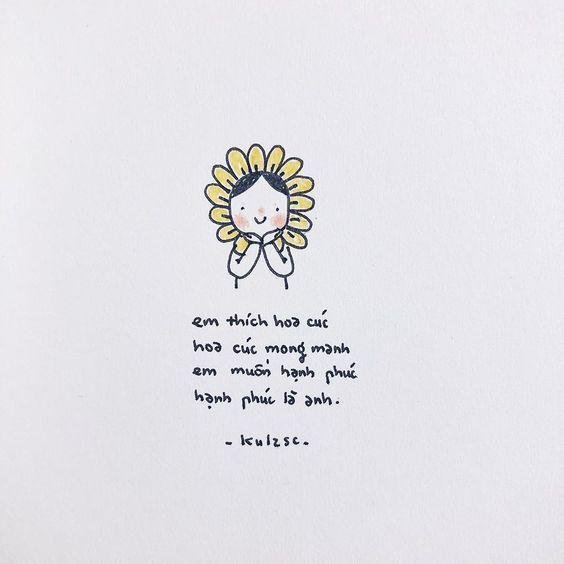 em thích hoa cúc
hoa cúc mong manh
em muốn hạnh phúc
hạnh phúc là anh.
- kulzsc -